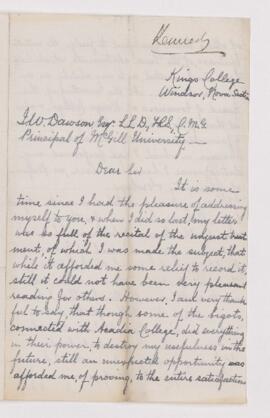 Kennedy
Kings College
Windsor, Nova Scotia
J. W. Dawson Esqr. LL D, F.R.S, C.M.G
Principal of McGill University.
Dear Sir
It is some
time since I had the pleasure of addressing
myself to you, & when I did so last, my letter
was so full of the recital of the unjust treat
ment, of which I was made the subject, that
while it afforded me some relief to record it,
still it could not have been very pleasant
reading for others. However, I am very thank
ful to say, that though some of the bigots,
connected with Acadia College, did everything
in their power, to destroy my usefulness in the
future, still an unexpected opportunity was
afforded me, of proving, to the entire satisfaction